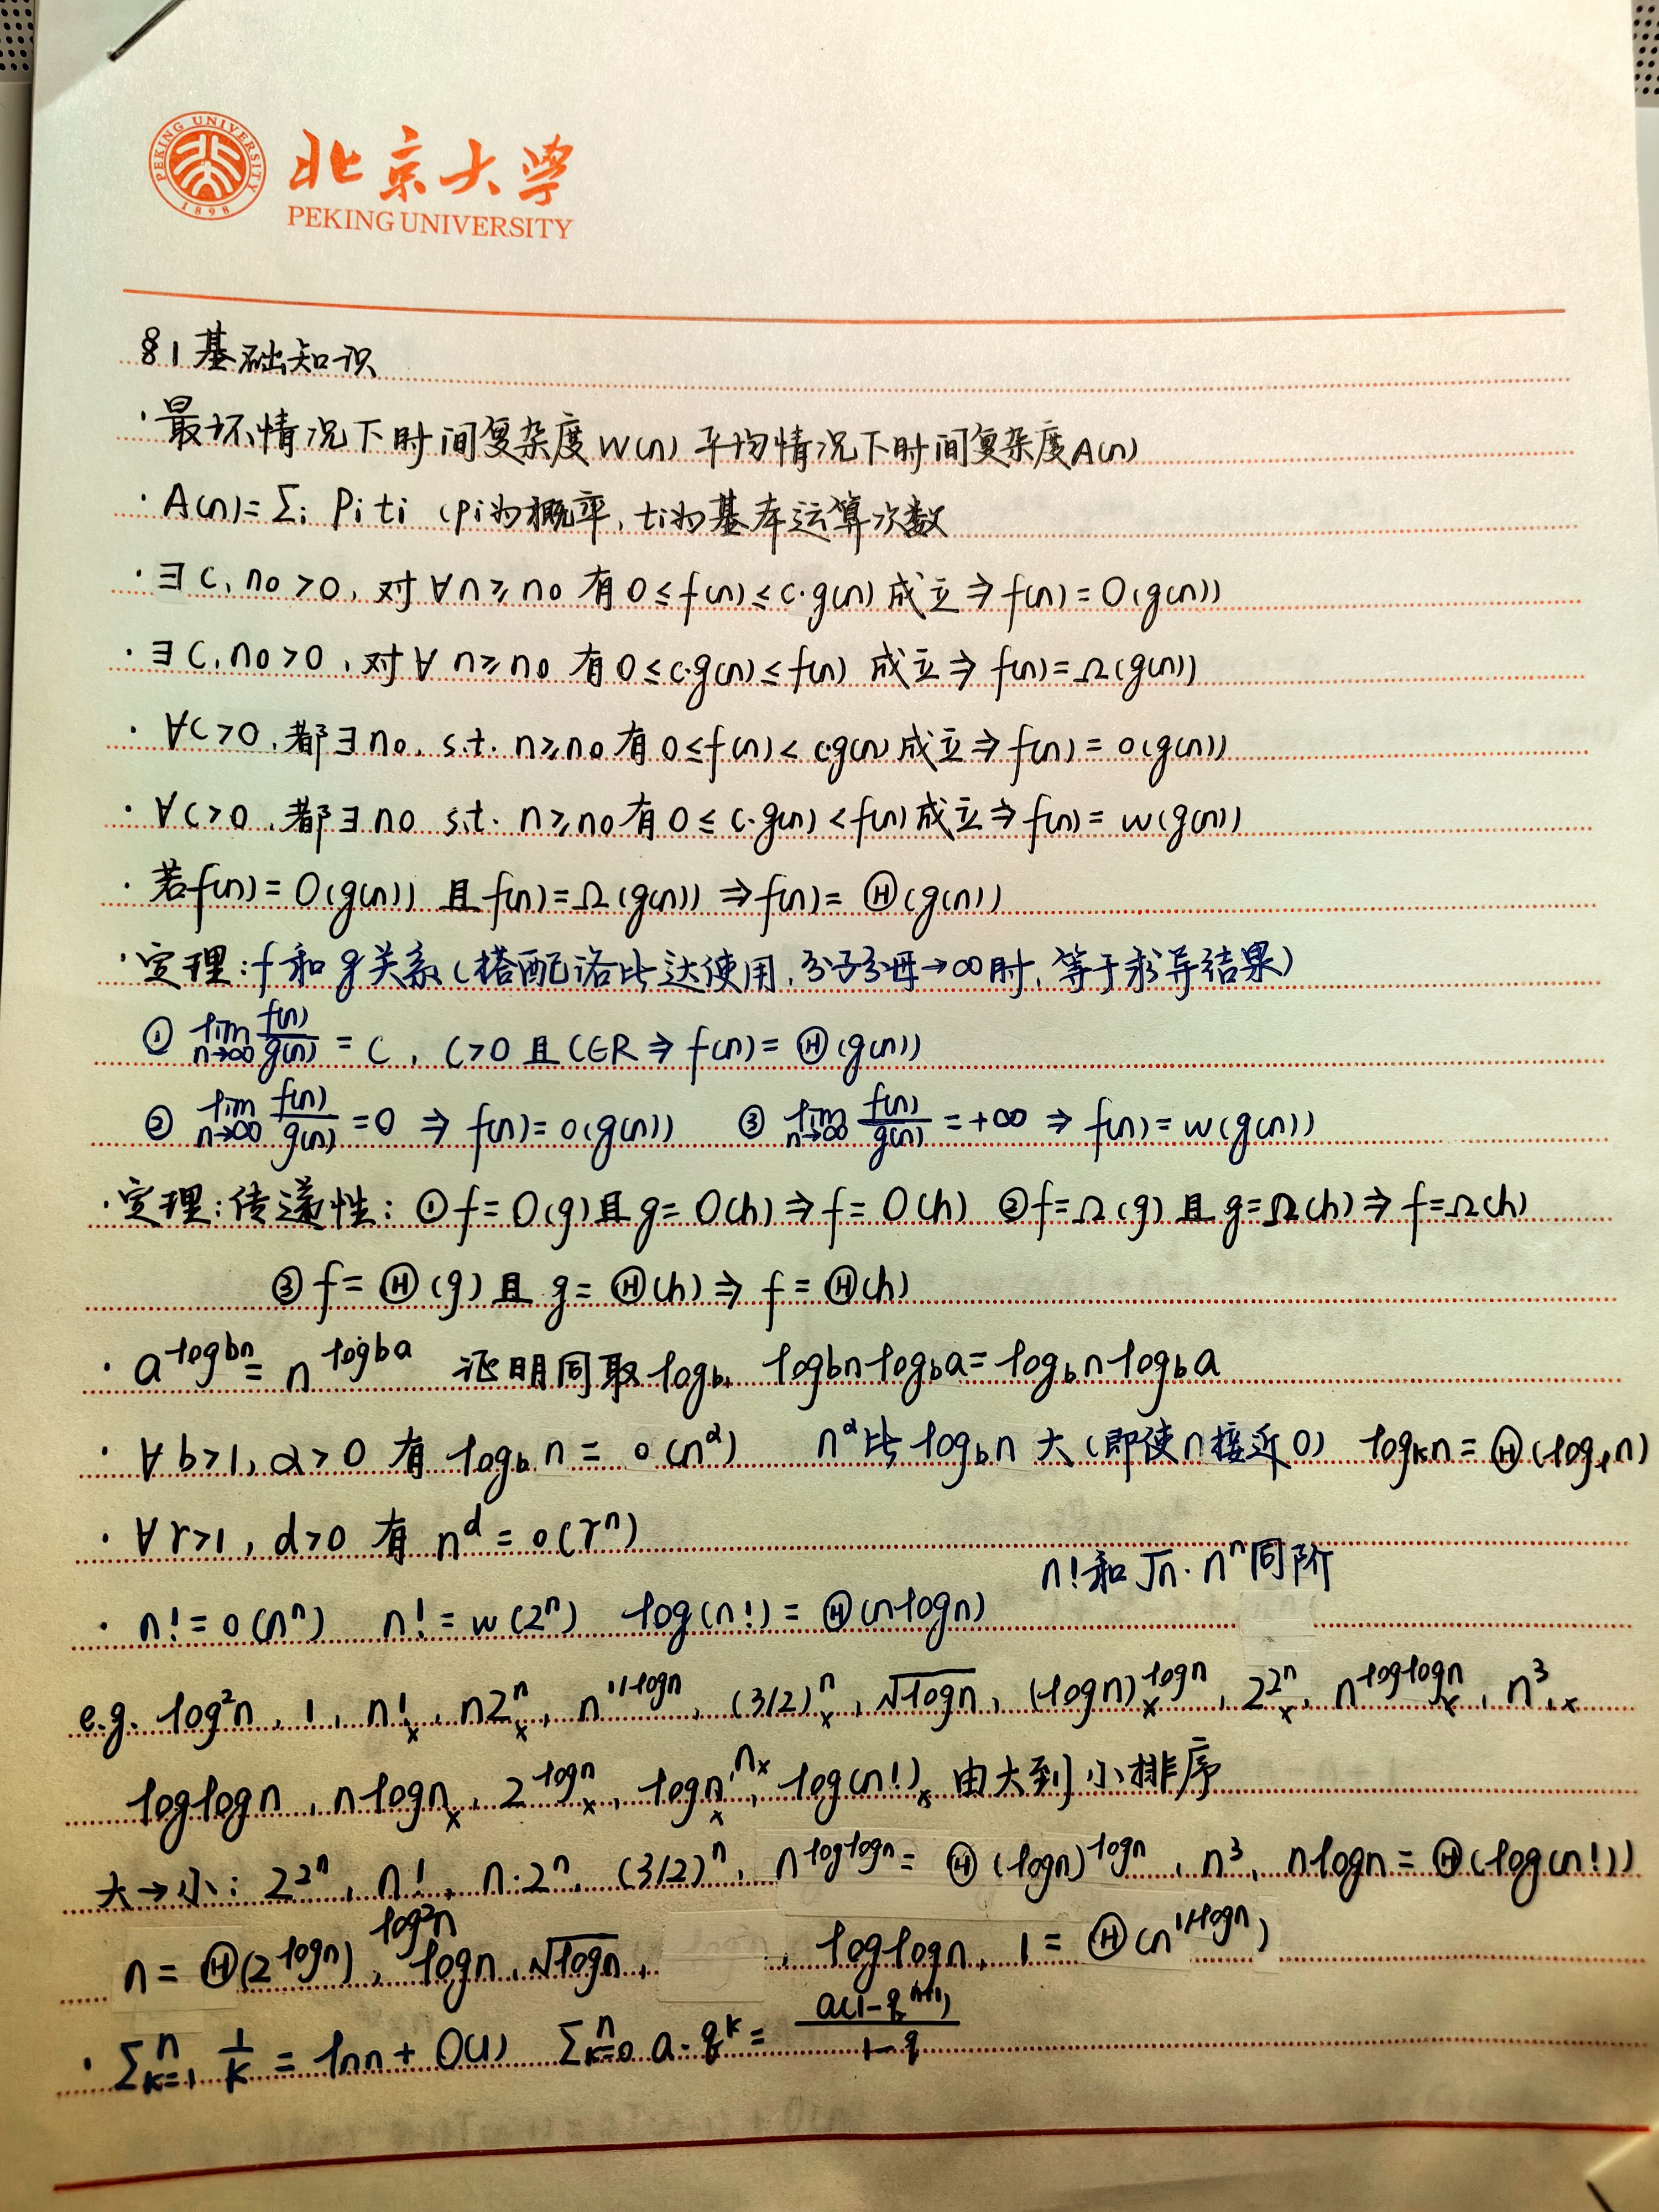 PEKING UNIVERSITY
1898
北京大学
PEKING UNIVERSITY
§1 基础知识
· 最坏情况下时间复杂度W(n) 平均情况下时间复杂度A(n)
· A(n)=Σᵢ Piti (pi为概率, ti为基本运算次数
· ∃ c, n₀ >0, 对 ∀n≥n₀ 有 0≤f(n)≤c·g(n) 成立⇒f(n)=O(g(n))
· ∃ c, n₀ >0, 对∀ n≥n₀ 有 0≤c·g(n)≤f(n) 成立⇒ f(n)=Ω(g(n))
· ∀c>0, 都∃n₀, s.t. n≥n₀有 0≤f(n)< c·g(n) 成立⇒f(n)= o(g(n))
· ∀c>0, 都∃n₀ s.t. n≥n₀有 0≤ c·g(n) <f(n)成立⇒f(n)= w(g(n))
· 若f(n)= O(g(n)) 且 f(n)=Ω(g(n)) ⇒f(n)= Θ(g(n))
· 定理:f和g关系(搭配洛比达使用, 分子分母→∞时, 等于求导结果)
① lim n→∞ f(n)/g(n) = C, C>0 且 C∈R ⇒ f(n)= Θ(g(n))
② lim n→∞ f(n)/g(n) =0 ⇒ f(n)= o(g(n)) ③ lim n→∞ f(n)/g(n) =+∞ ⇒ f(n)= w(g(n))
· 定理:传递性: ①f=O(g)且g= O(h)⇒f= O(h) ②f=Ω(g) 且 g=Ω(h)⇒ f=Ω(h)
③ f= Θ(g) 且 g= Θ(h)⇒ f= Θ(h)
· a^(logbn) = n^(logba) 证明同取logb, logbn·logba=logbn·logba
· ∀ b>1, α>0 有 logb n = o(n^α) n^α比 logbn 大 (即使n接近0) logkn= Θ(logln)
· ∀r>1, d>0 有 n^d = o(r^n)
n!和√n·n^n同阶
· n!=o(n^n) n!=w(2^n) log(n!)= Θ(nlogn)
e.g. log²n, 1, n!x, n2^n x, n^(1/logn), (3/2)^n x, √logn, (logn)^logn x, 2^2^n x, n^loglogn x, n³, x
loglogn, nlogn x, 2^logn x, logn x, n x, log(n!) x 由大到小排序
大→小: 2^2^n, n!, n·2^n, (3/2)^n, n^loglogn= Θ(logn)^logn, n³, nlogn= Θ(log(n!))
n= Θ(2^logn), log²n, logn, √logn, , loglogn, 1= Θ(n^(1/logn))
· Σ(k=1)^n 1/k = lnn+ O(1) Σ(k=0)^n a·q^k = a(1-q^(n+1))/(1-q)